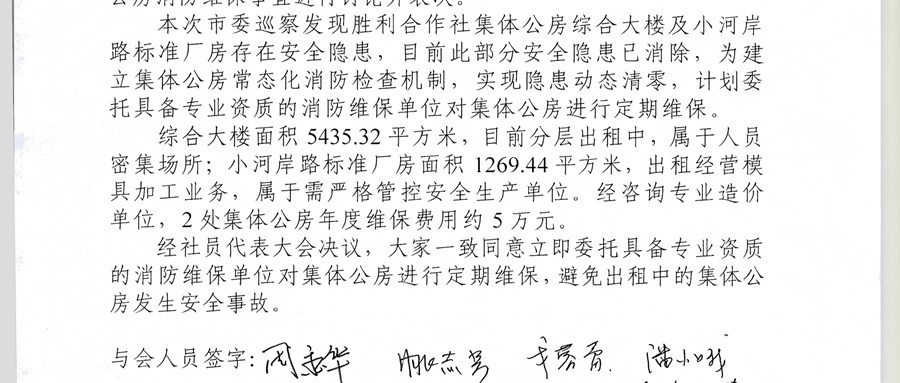 公房消防维保事宜进行讨论并表决。
本次市委巡察发现胜利合作社集体公房综合大楼及小河岸
路标准厂房存在安全隐患，目前此部分安全隐患已消除，为建
立集体公房常态化消防检查机制，实现隐患动态清零，计划委
托具备专业资质的消防维保单位对集体公房进行定期维保。
综合大楼面积 5435.32 平方米，目前分层出租中，属于人员
密集场所；小河岸路标准厂房面积 1269.44 平方米，出租经营模
具加工业务，属于需严格管控安全生产单位。经咨询专业造价
单位，2 处集体公房年度维保费用约 5 万元。
经社员代表大会决议，大家一致同意立即委托具备专业资质
的消防维保单位对集体公房进行定期维保，避免出租中的集体公
房发生安全事故。
与会人员签字：